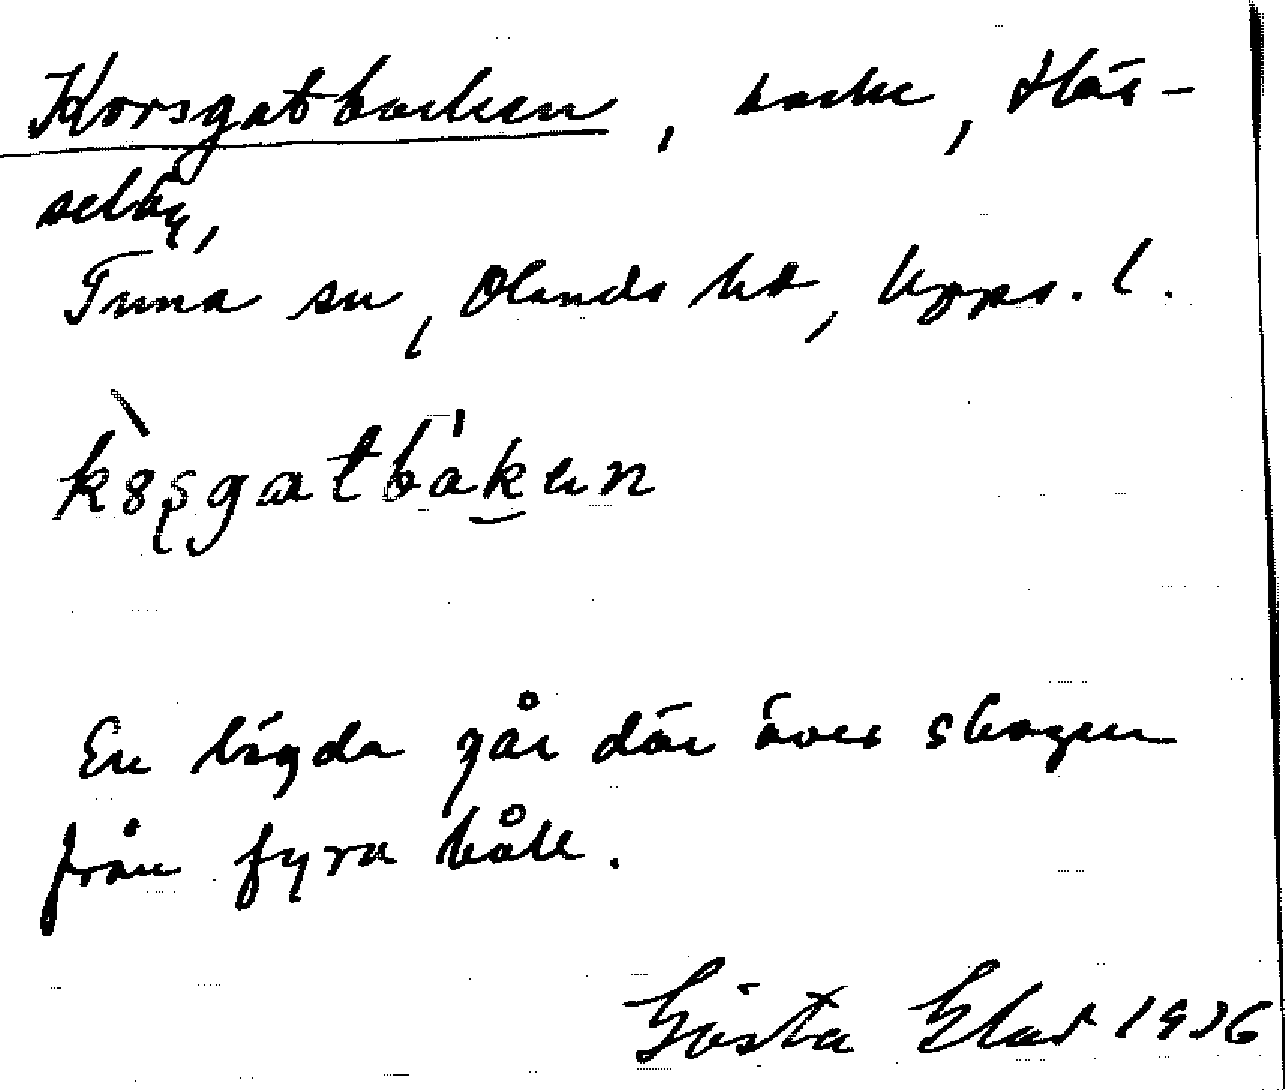 Korsgatbacken, backe, Häs-
selby,
Tuna sn, Olands hd, Upps. l.
k8ʂgatbaken
En lägda går där över skogen
från fyra håll.
Gösta 1936